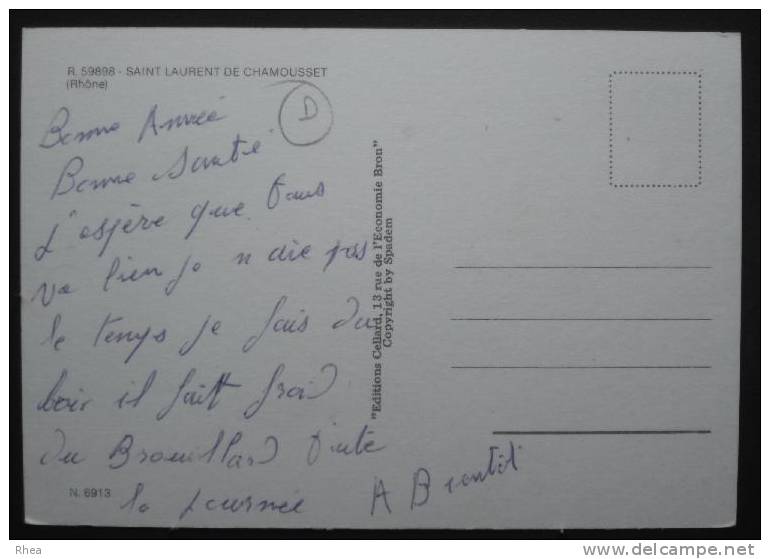 R. 59898 - SAINT LAURENT DE CHAMOUSSET
(Rhône)
D
Bonne Année
Bonne Santé
J'espère que tous
va bien je n aie pas
le temps je fais du
bois il fait froid
du Brouillard toute
la journée
A Bientôt
N. 6913
"Editions Cellard, 13 rue de l'Economie Bron"
Copyright by Spadem
Rhea
http://www.delcampe.net